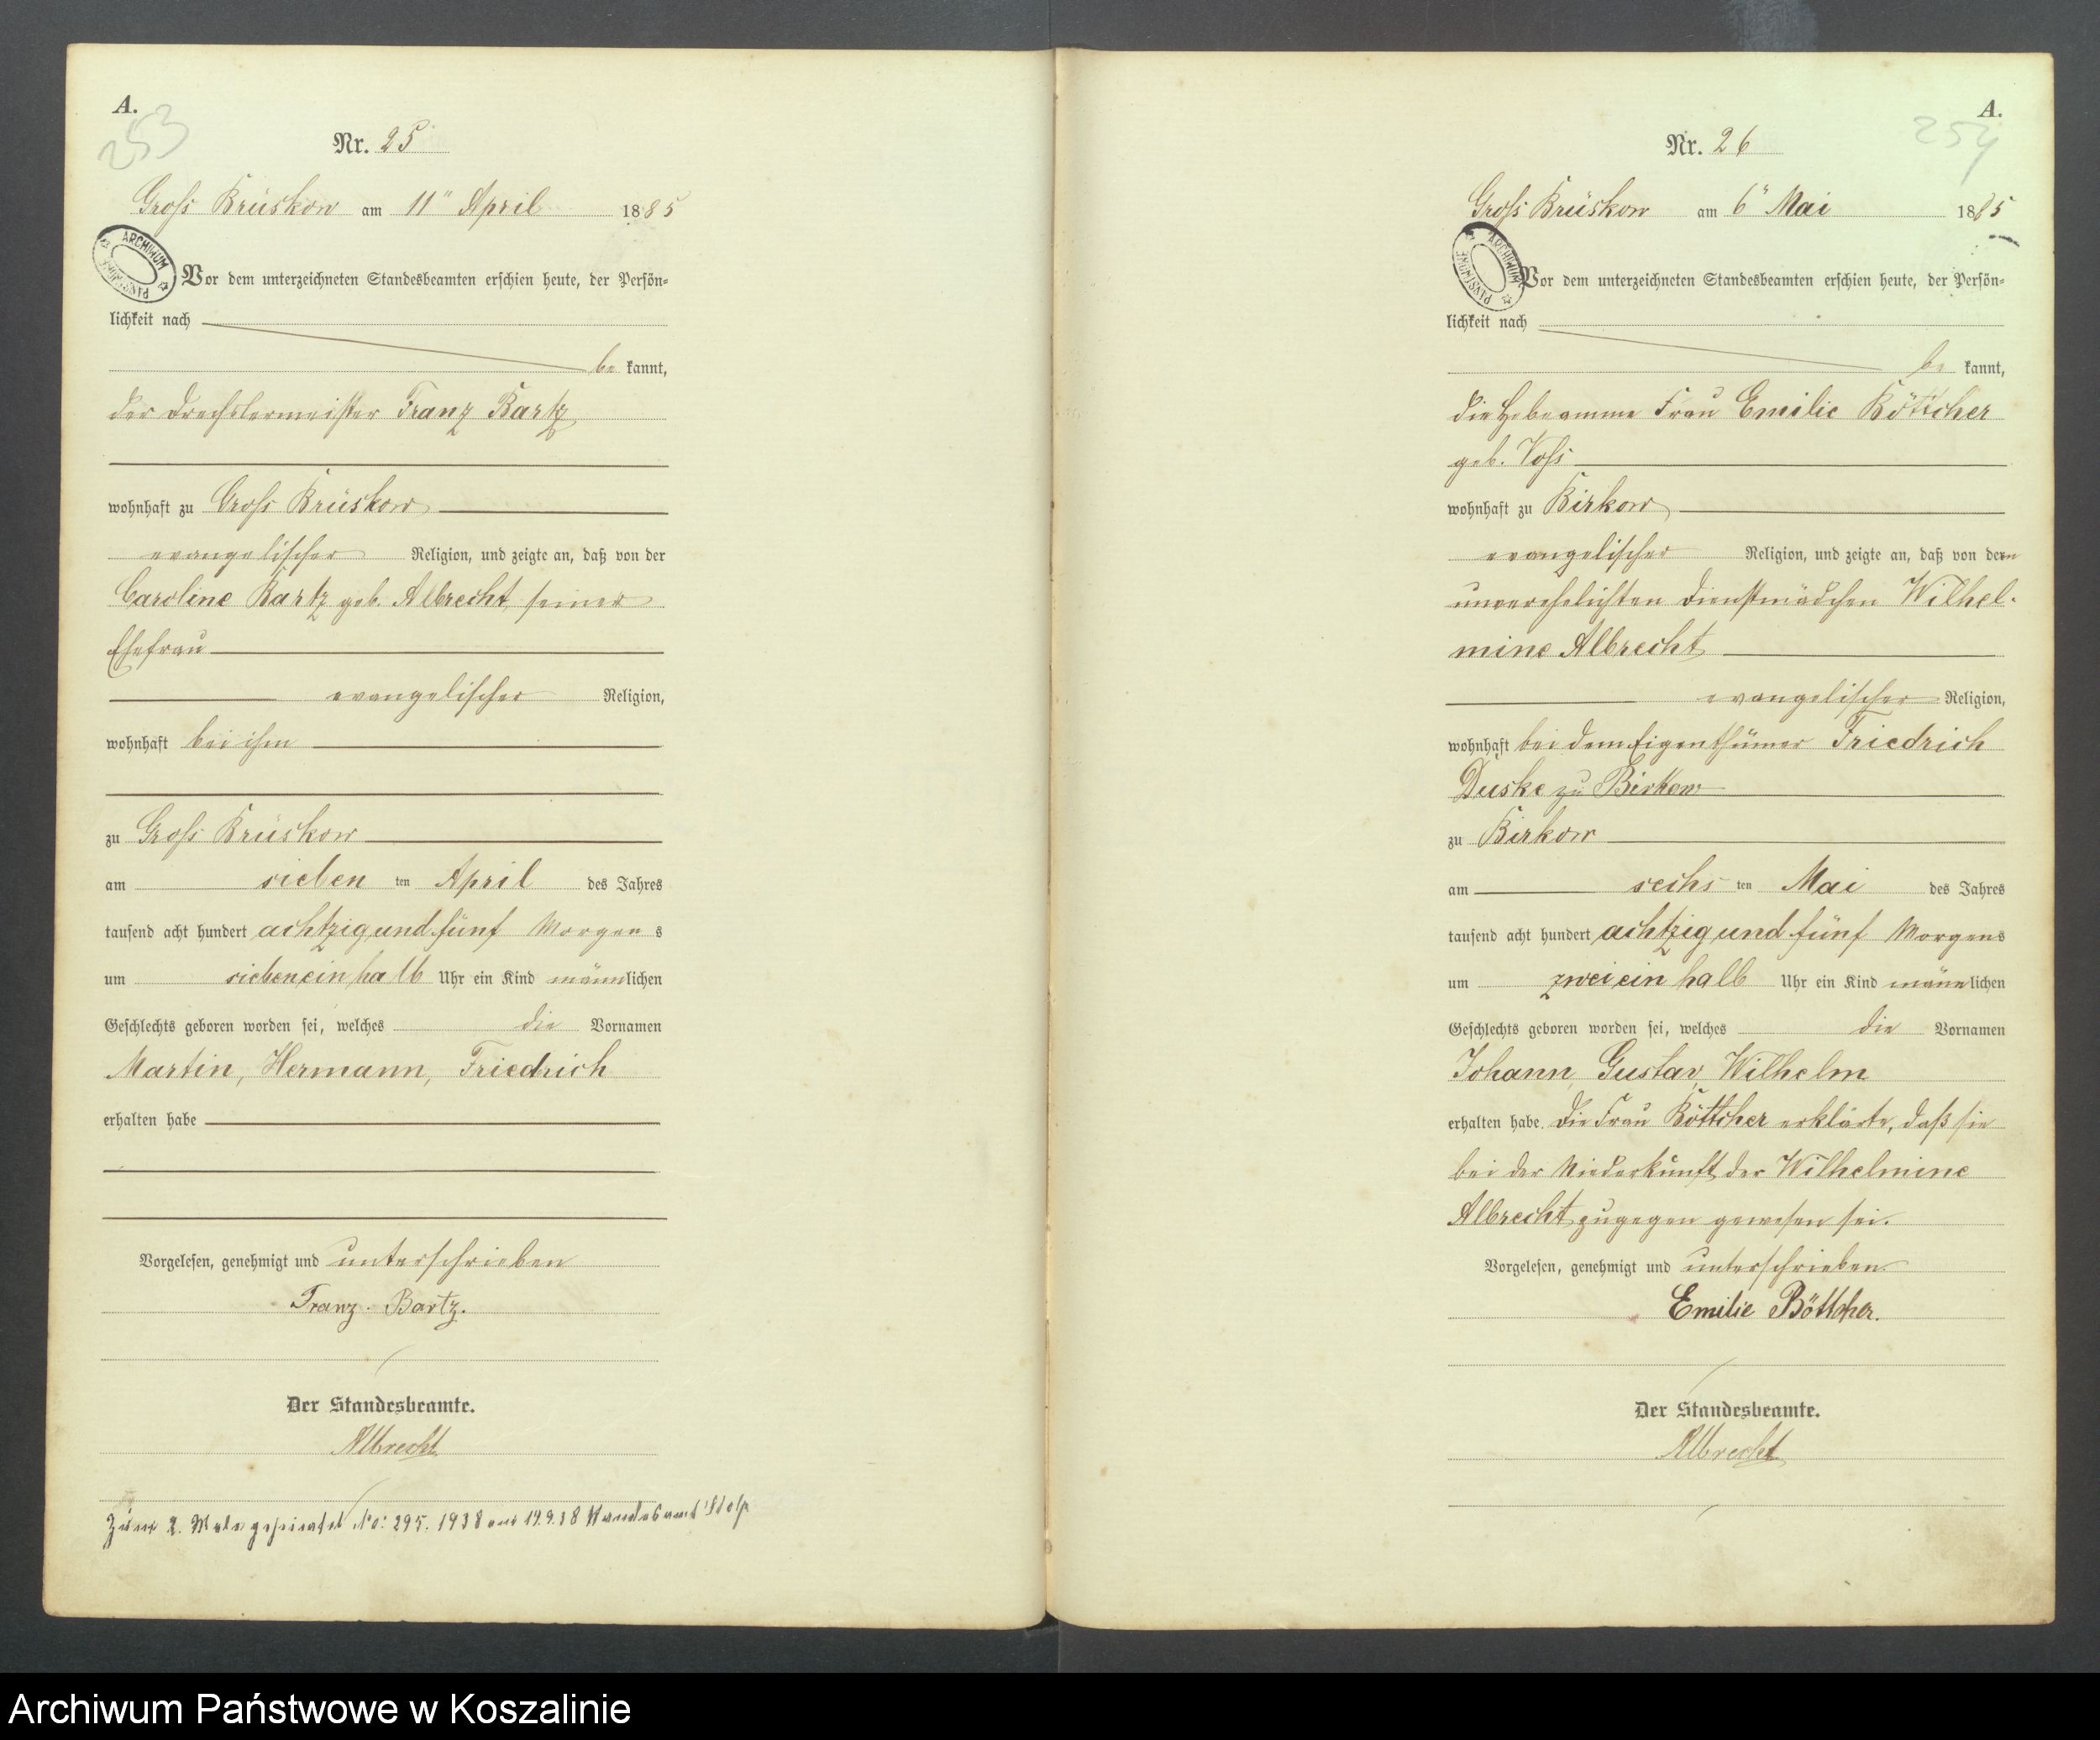 A.
253
Nr. 25
Gross Brüskow am 11" April 1885
ARCHIWUM PAŃSTWOWE
Vor dem unterzeichneten Standesbeamten erschien heute, der Persön-
lichkeit nach
be kannt,
der Drechslermeister Franz Bartz
wohnhaft zu Gross Brüskow
evangelischer Religion, und zeigte an, daß von der
Caroline Bartz geb. Albrecht, seiner
Ehefrau
evangelischer Religion,
wohnhaft bei ihm
zu Gross Brüskow
am sieben ten April des Jahres
tausend acht hundert achtzig und fünf Morgen s
um siebeneinhalb Uhr ein Kind männlichen
Geschlechts geboren worden sei, welches die Vornamen
Martin, Hermann, Friedrich
erhalten habe
Vorgelesen, genehmigt und unterschrieben
Franz Bartz.
Der Standesbeamte.
Albrecht
Zum 2. Male geheiratet No: 295. 1938 am 19.9.38 Standesamt Stolp
A.
254
Nr. 26
Gross Brüskow am 6" Mai 1885
ARCHIWUM PAŃSTWOWE
Vor dem unterzeichneten Standesbeamten erschien heute, der Persön-
lichkeit nach
be kannt,
die Hebeamme Frau Emilie Böttcher
geb. Voss
wohnhaft zu Birkow
evangelischer Religion, und zeigte an, daß von dem
unverehelichten Dienstmädchen Wilhel-
mine Albrecht
evangelischer Religion,
wohnhaft bei dem Eigenthümer Friedrich
Duske zu Birkow
zu Birkow
am sechs ten Mai des Jahres
tausend acht hundert achtzig und fünf Morgens
um zweieinhalb Uhr ein Kind männlichen
Geschlechts geboren worden sei, welches die Vornamen
Johann, Gustav, Wilhelm
erhalten habe. Die Frau Böttcher erklärte, daß sie
bei der Niederkunft der Wilhelmine
Albrecht zugegen gewesen sei.
Vorgelesen, genehmigt und unterschrieben
Emilie Böttcher.
Der Standesbeamte.
Albrecht
Archiwum Państwowe w Koszalinie